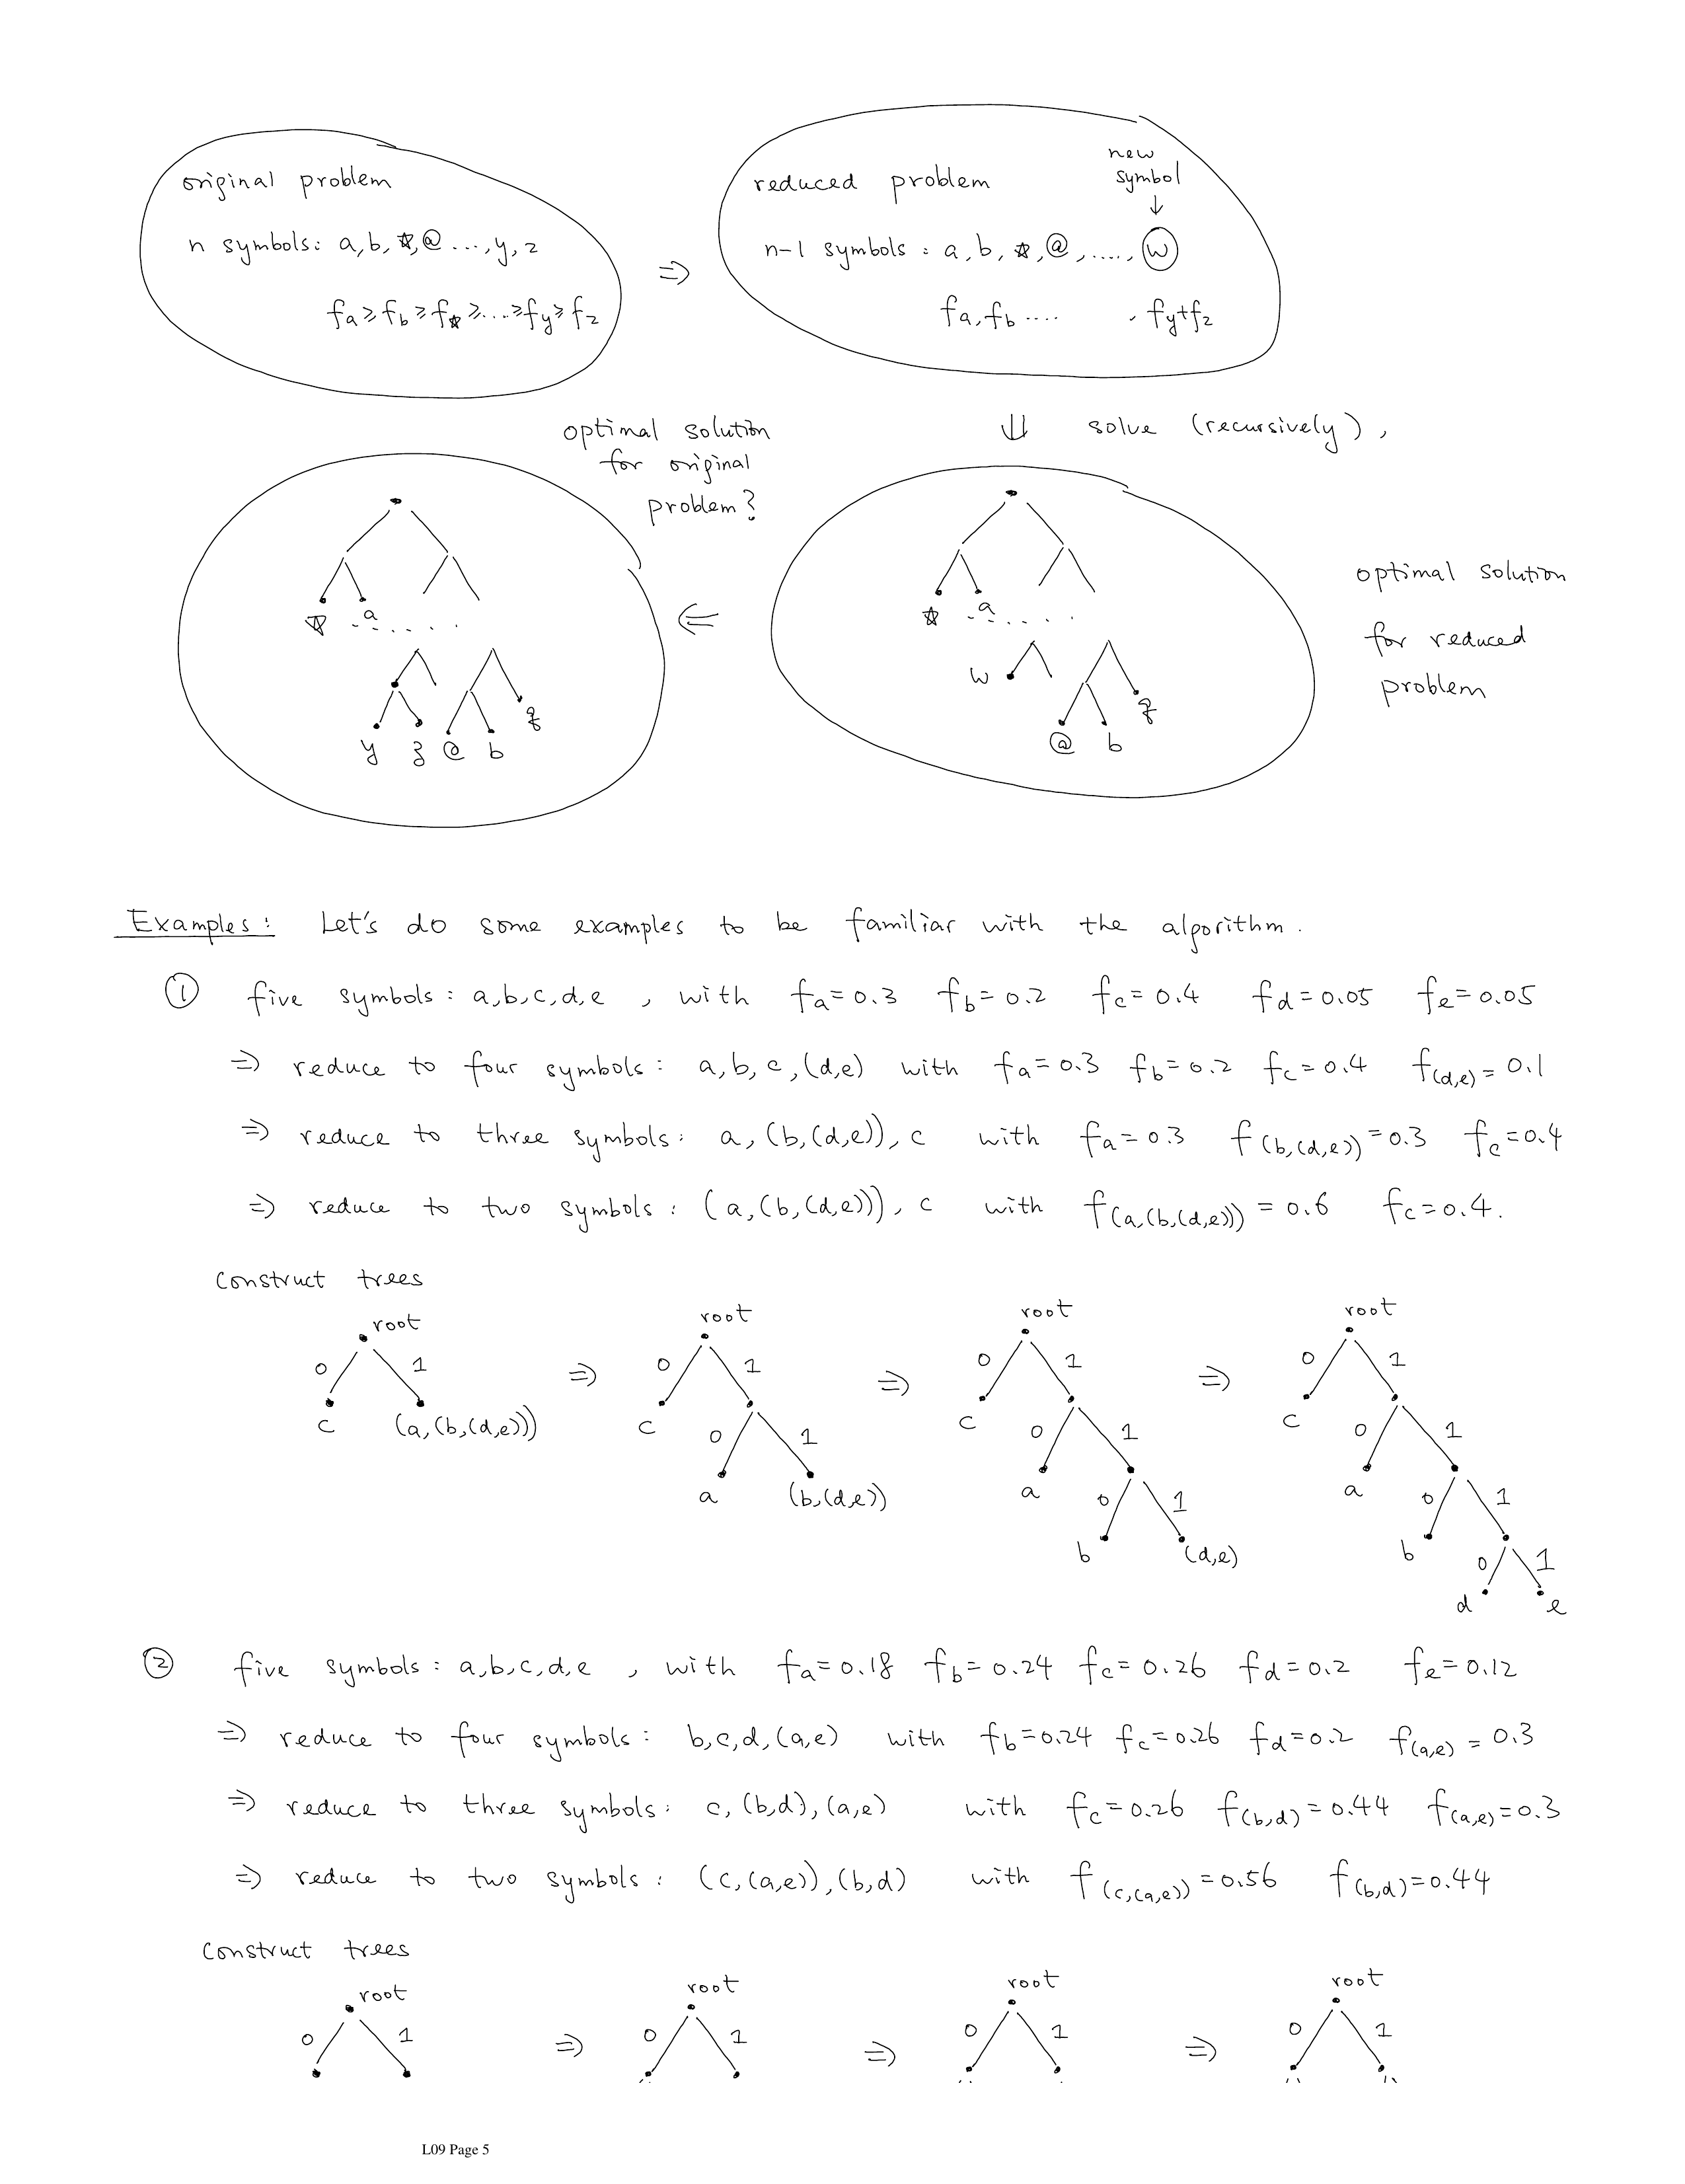 original problem
n symbols: a, b, ☆, @ ..., y, z
fa ≥ fb ≥ f☆ ≥ ... ≥ fy ≥ fz
⇒
new
symbol
↓
reduced problem
n-1 symbols : a, b, ☆, @, ....., w
fa, fb .... , fy+fz
⇓ solve (recursively),
optimal solution
for original
problem?
☆ a . . . . .
y z @ b z
⇐
☆ a . . . . .
w
@ b z
optimal solution
for reduced
problem
Examples: Let's do some examples to be familiar with the algorithm.
① five symbols: a, b, c, d, e , with fa=0.3 fb=0.2 fc=0.4 fd=0.05 fe=0.05
⇒ reduce to four symbols: a, b, c, (d,e) with fa=0.3 fb=0.2 fc=0.4 f(d,e)=0.1
⇒ reduce to three symbols: a, (b,(d,e)), c with fa=0.3 f(b,(d,e))=0.3 fc=0.4
⇒ reduce to two symbols: (a,(b,(d,e))), c with f(a,(b,(d,e)))=0.6 fc=0.4.
construct trees
root
0 1
c (a,(b,(d,e)))
⇒
root
0 1
c 0 1
a (b,(d,e))
⇒
root
0 1
c 0 1
a 0 1
b (d,e)
⇒
root
0 1
c 0 1
a 0 1
b 0 1
d e
② five symbols: a, b, c, d, e , with fa=0.18 fb=0.24 fc=0.26 fd=0.2 fe=0.12
⇒ reduce to four symbols: b, c, d, (a,e) with fb=0.24 fc=0.26 fd=0.2 f(a,e)=0.3
⇒ reduce to three symbols: c, (b,d), (a,e) with fc=0.26 f(b,d)=0.44 f(a,e)=0.3
⇒ reduce to two symbols: (c,(a,e)), (b,d) with f(c,(a,e))=0.56 f(b,d)=0.44
construct trees
root
0 1
⇒
root
0 1
⇒
root
0 1
⇒
root
0 1
L09 Page 5